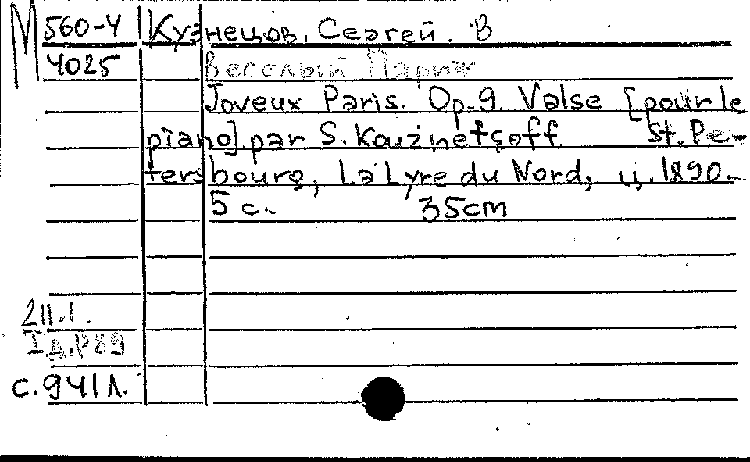 М 560-4 Кузнецов, Сергей. В
4025 Веселый Париж
Joyeux Paris. Op. 9. Valse [pour le
piano] par S. Kouznetsoff. St. Pe-
tersbourg, La Lyre du Nord, ц. 1890.
5 с. 35cm
211.1.
с. 941 л.